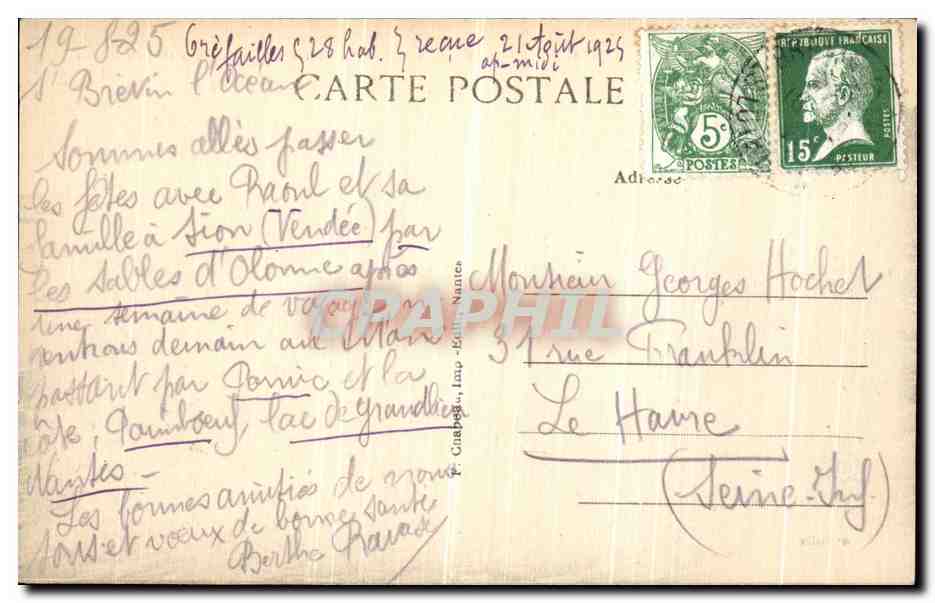 19-8-25
St Brevin l'Océan
Préfailles { 28 hab. } reçue 21 Août 1925
ap-midi
CARTE POSTALE
5c
POSTES
REPUBLIQUE FRANÇAISE
15c
POSTES
PASTEUR
Adresse
Sommes allés passer
les fêtes avec Raoul et sa
famille à Sion (Vendée) par
les Sables d'Olonne après
une semaine de
rentrons demain au Man
passant par Pornic et la
côte, Paimboeuf, lac de grandlieu
Nantes -
Les bonnes amitiés de nous
tous et voeux de bonne santé
Berthe
F. Chapeau, Imp.-Edit., Nantes
CPAPHIL
Monsieur Georges Hochet
31 rue Franklin
Le Havre
(Seine-Inf)